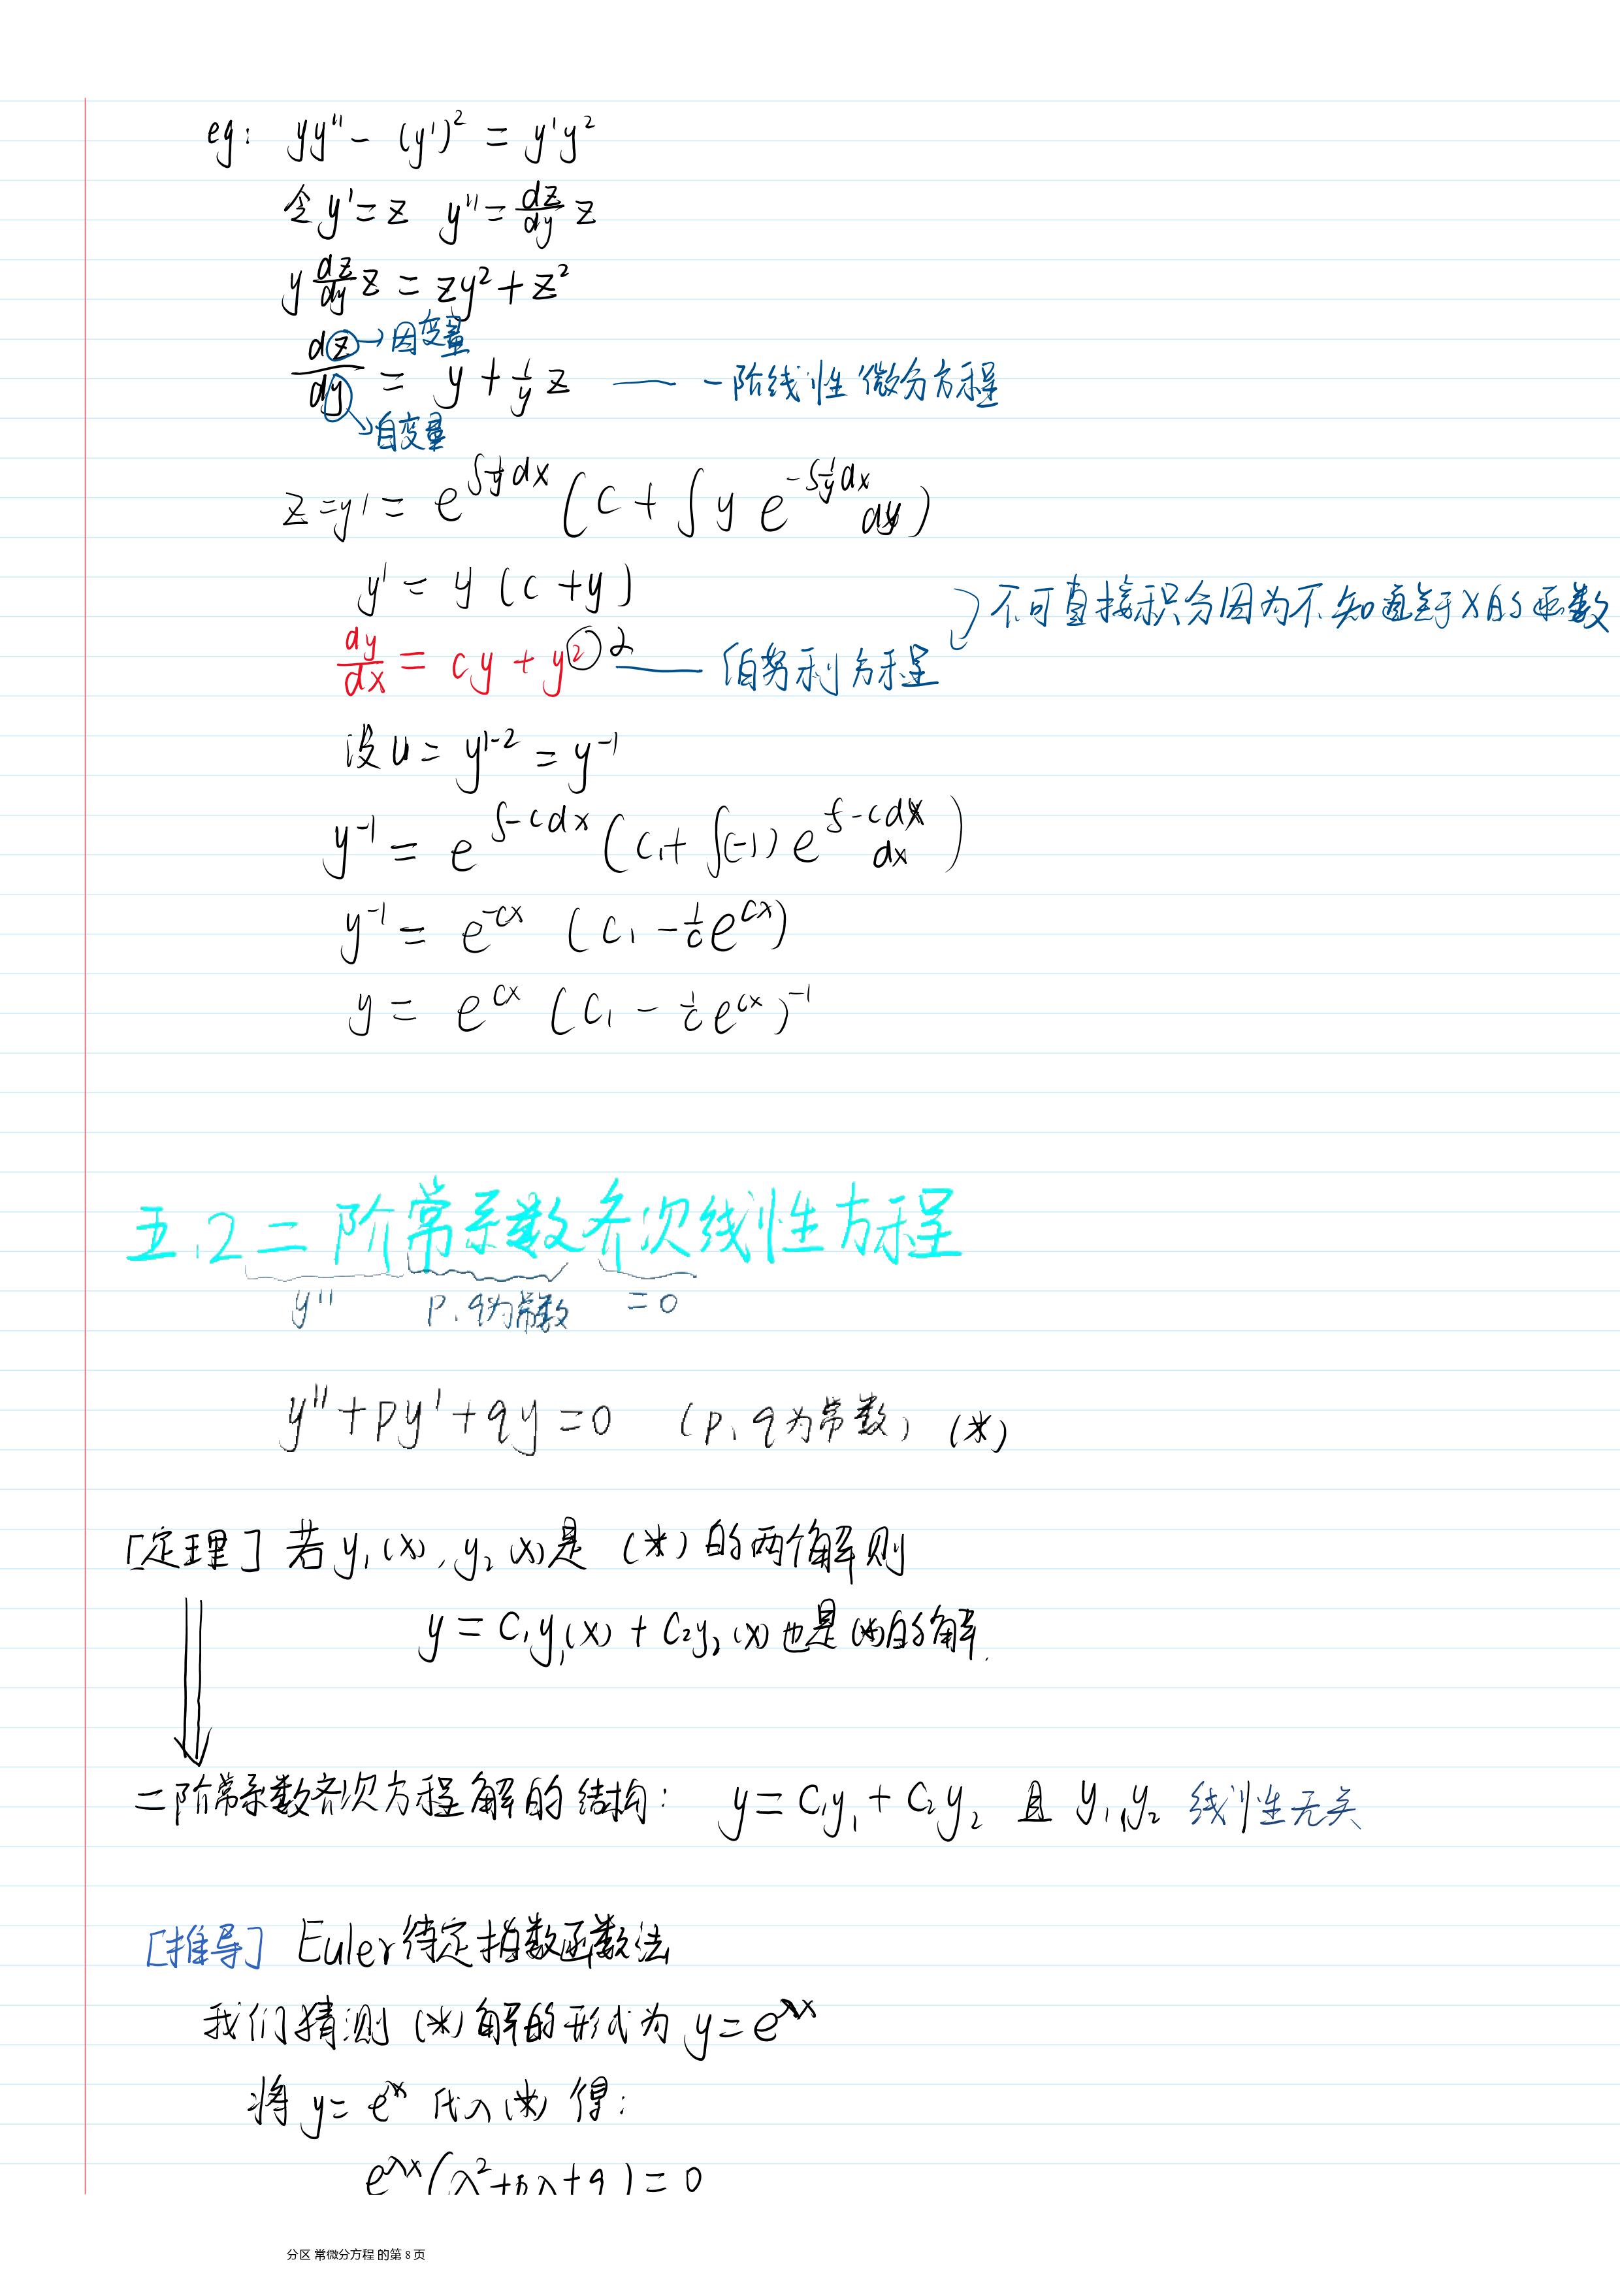 eg: yy'' - (y')² = y'y²
令 y' = z  y'' = dz/dy z
y dz/dy z = zy² + z²
dz/dy = y + 1/y z —— 一阶线性微分方程
→因变量
→自变量
z = y' = e^{∫1/y dx} (C + ∫ y e^{-∫1/y dx} dy)
y' = y (c + y)
不可直接积分因为不知道y关于x的函数
dy/dx = cy + y² α —— 伯努利方程
设 u = y^{1-2} = y^{-1}
y^{-1} = e^{∫-c dx} (C₁ + ∫(-1) e^{∫-c dx} dx)
y^{-1} = e^{-cx} (C₁ - 1/c e^{cx})
y = e^{cx} (C₁ - 1/c e^{cx})^{-1}
五.2 二阶常系数齐次线性方程
y''  p、q为常数  =0
y'' + py' + qy = 0 (p、q为常数) (*)
[定理] 若 y₁(x), y₂(x)是 (*) 的两个解则
y = C₁y₁(x) + C₂y₂(x) 也是(*)的解.
二阶常系数齐次方程解的结构: y = C₁y₁ + C₂y₂ 且 y₁,y₂ 线性无关
[推导] Euler待定指数函数法
我们猜测 (*) 解的形式为 y = e^{λx}
将 y = e^{x} 代入(*) 得:
e^{λx}(λ² + pλ + q) = 0
分区 常微分方程 的第 8 页